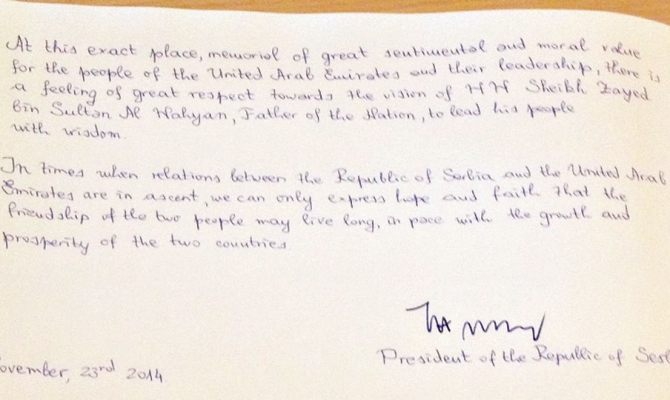 At this exact place, memorial of great sentimental and moral value
for the people of the United Arab Emirates and their leadership, there is
a feeling of great respect towards the vision of HH Sheikh Zayed
bin Sultan Al Nahyan, Father of the Nation, to lead his people
with wisdom.
In times when relations between the Republic of Serbia and the United Arab
Emirates are in ascent, we can only express hope and faith that the
friendship of the two people may live long, in pace with the growth and
prosperity of the two countries
President of the Republic of Serb
ovember, 23rd 2014